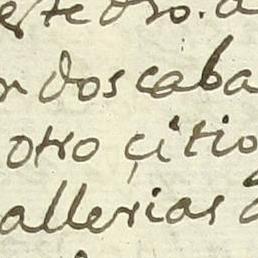 este oro. a
dos caba
otro çitio
allerias